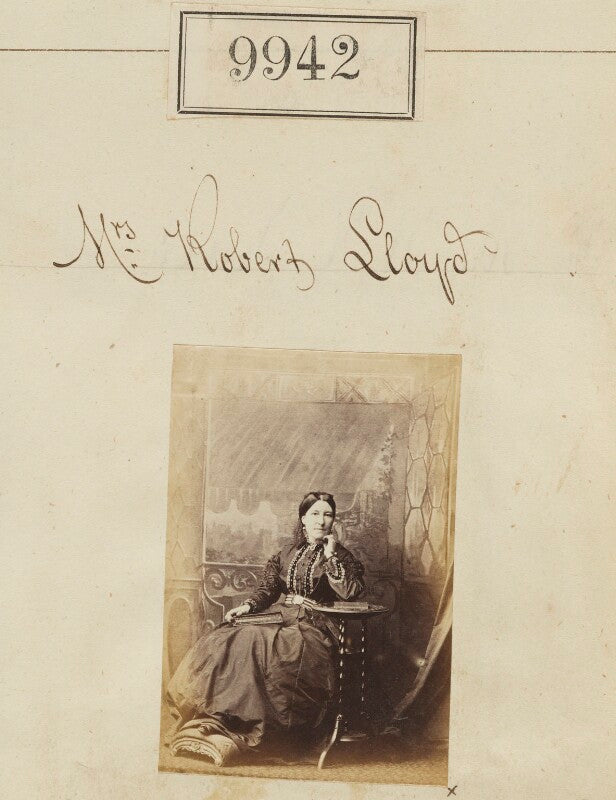 9942
Mrs: Robert Lloyd
x